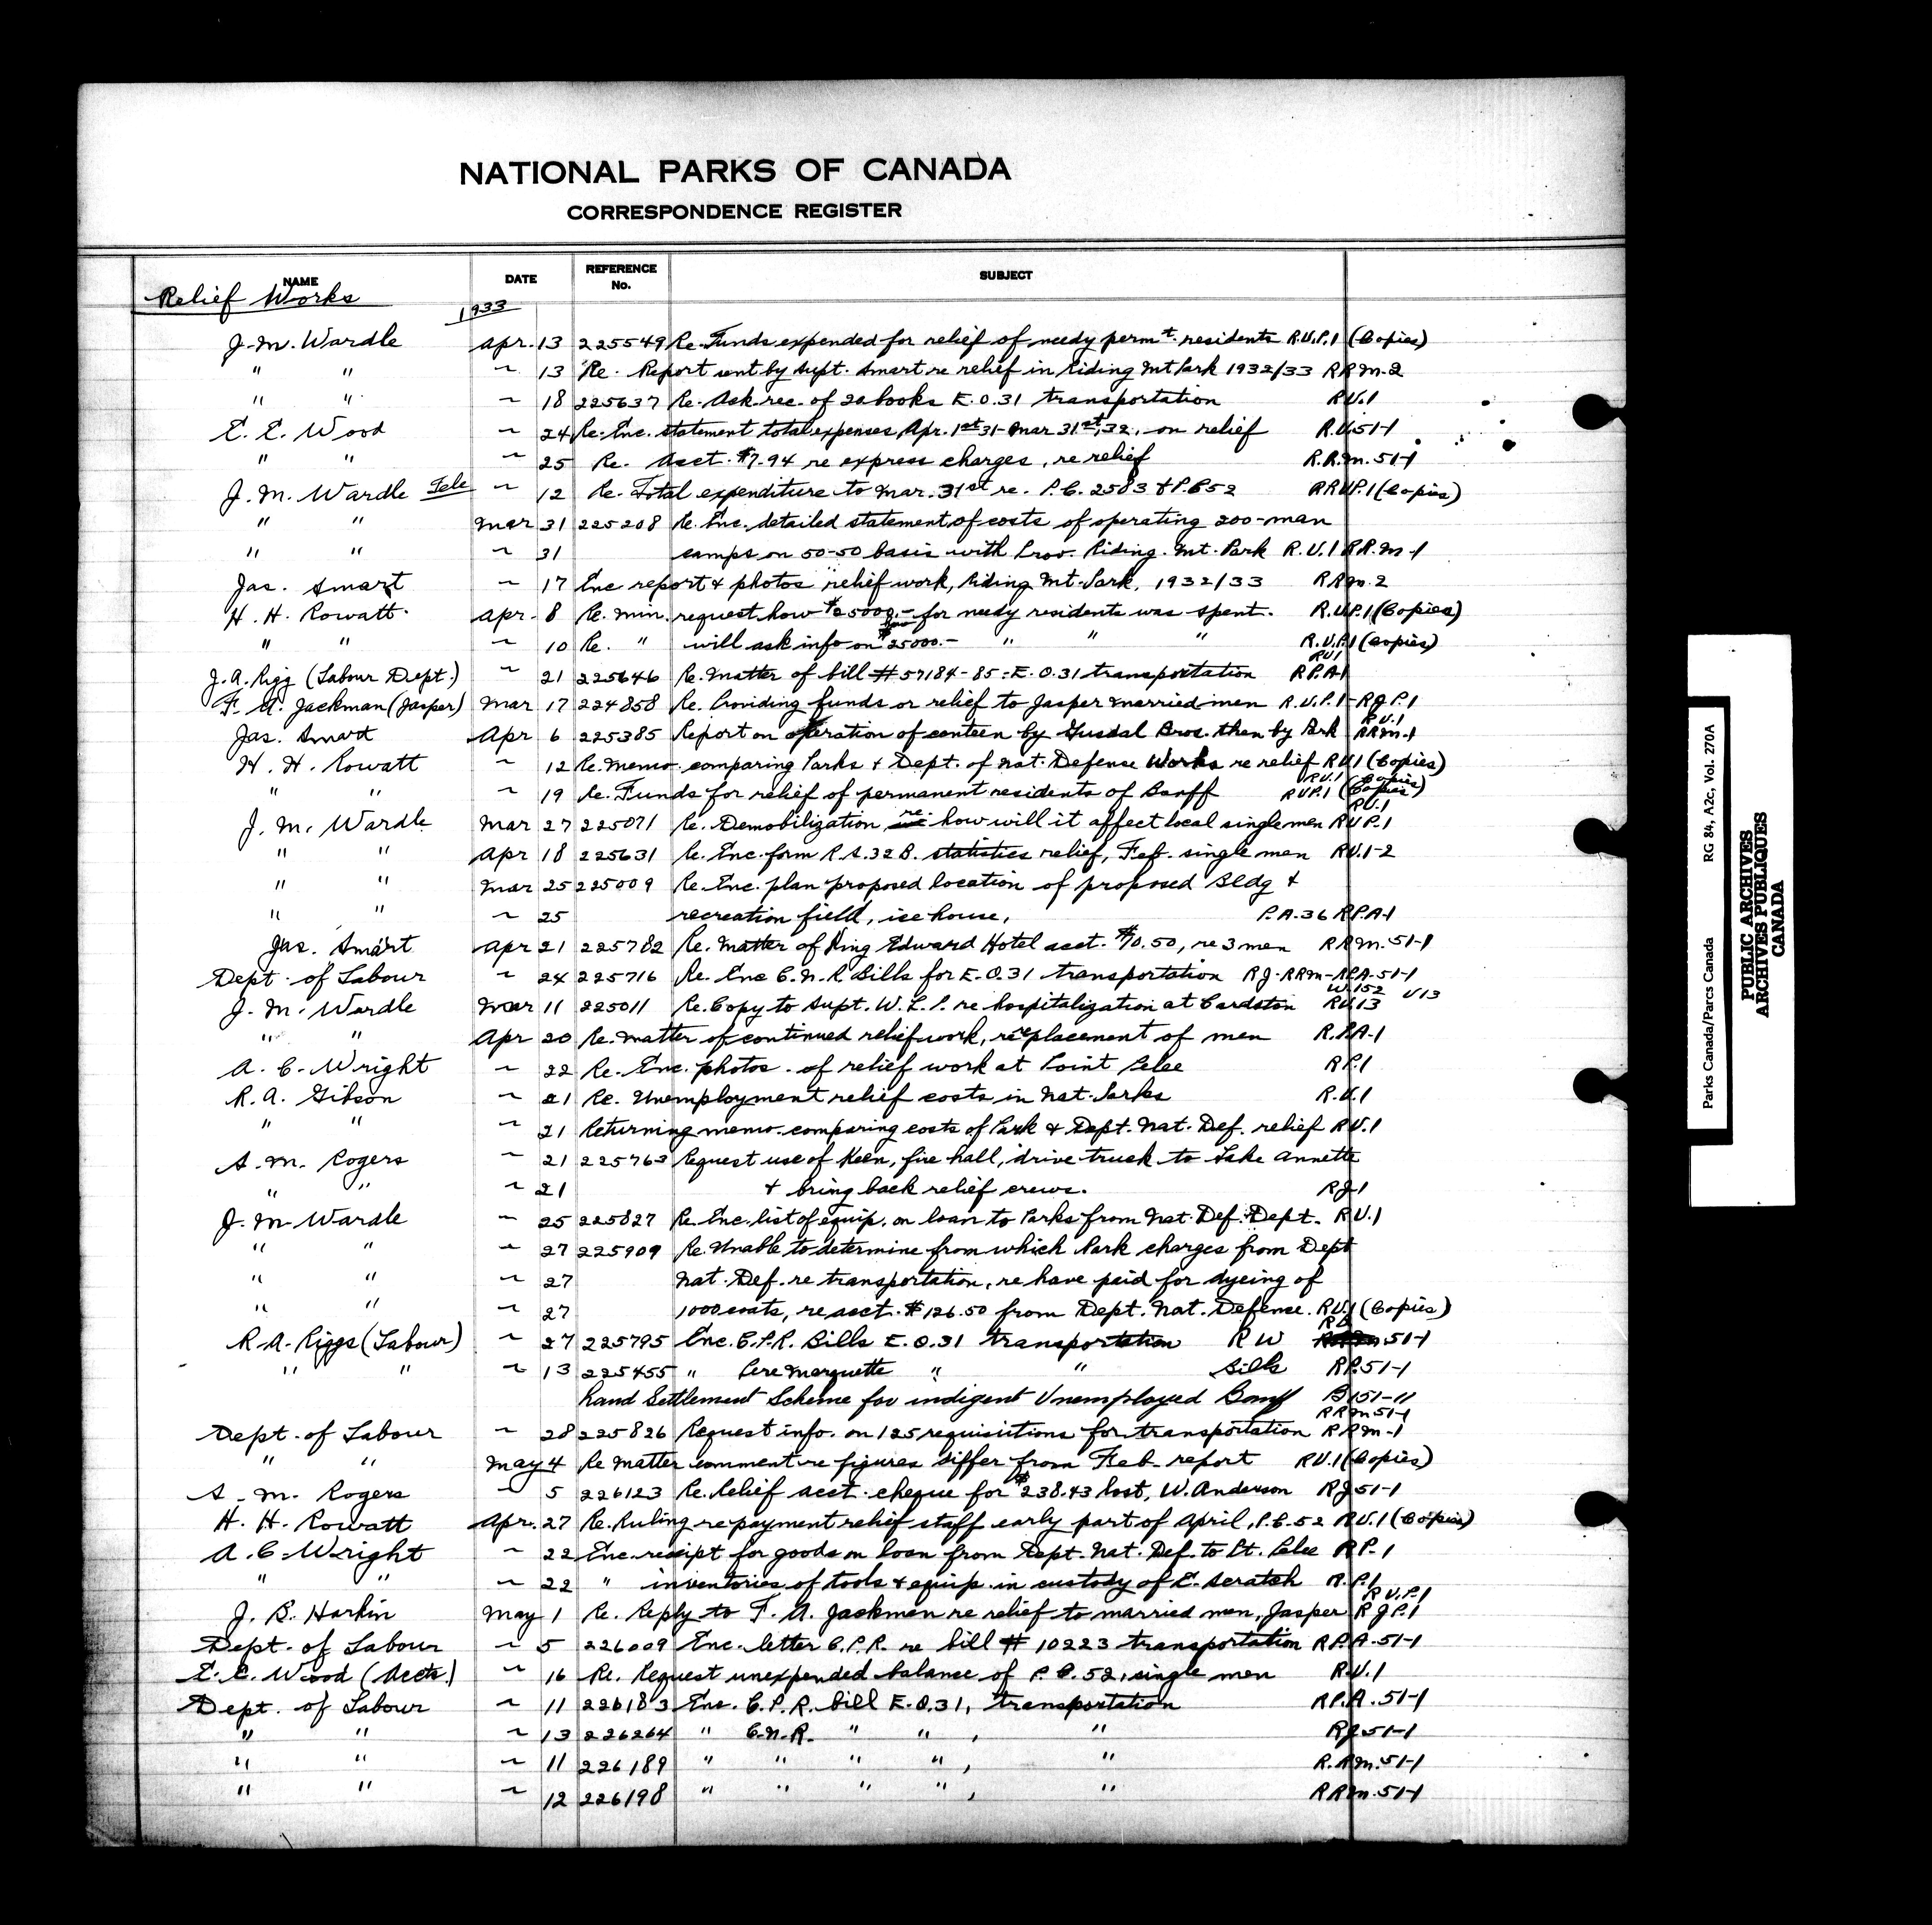 NATIONAL PARKS OF CANADA
CORRESPONDENCE REGISTER
NAME DATE REFERENCE No. SUBJECT
Relief Works
1933
J. M. Wardle Apr. 13 225549 Re. Funds expended for relief of needy permt. residents R.U.P.1 (Copies)
" " ~ 13 Re. Report sent by Supt. Smart re relief in Riding Mt Park 1932/33 RRM-2
" " ~ 18 225637 Re. Ask rec. of 20 books E.O.31 transportation RU.1
E. E. Wood ~ 24 Re. Enc. statement total expenses, Apr. 1st 31- Mar 31st, 32, on relief R.U.51-1
" " ~ 25 Re. Acct. $7.94 re express charges, re relief R.R.M.51-1
J. M. Wardle Tele ~ 12 Re. Total expenditure to Mar. 31st re. P.C. 2583 & P.C52 RRUP.1 (Copies)
" " Mar 31 225208 Re. Enc. detailed statement of costs of operating 200-man
" " ~ 31 camps on 50-50 basis with Prov. Riding. Mt. Park R.U.1 RR.M-1
Jas. Smart ~ 17 Enc report & photos relief work, Riding Mt. Park, 1932/33 RRM-2
H. H. Rowatt Apr. 8 Re. Min. request how $25000.- for needy residents was spent. R.U.P.1 (Copies)
" " ~ 10 Re. " will ask info on $25000.- " " " R.U.P.1 (Copies)
RU1
J. A. Rigg (Labour Dept.) ~ 21 225646 Re. Matter of bill # 57184-85 - E.O.31 transportation RP.A1
F. A. Jackman (Jasper) Mar 17 224858 Re. Providing funds or relief to Jasper married men R.U.P.1 - RJP.1
RU.1
Jas. Smart Apr 6 225385 Report on operation of canteen by Gusdal Bros. then by Park RRM-1
H. H. Rowatt ~ 12 Re. Memo. comparing Parks & Dept. of Nat. Defense Works re relief RU1 (Copies)
RU.1 (Copies)
" " ~ 19 Re. Funds for relief of permanent residents of Banff RUP.1 (Copies)
RU.1
J. M. Wardle Mar 27 225071 Re. Demobilization re how will it affect local single men RUP.1
" " Apr 18 225631 Re. Enc. form R.S.32B. statistics relief, Feb. single men RU.1-2
" " Mar 25 225009 Re. Enc. plan proposed location of proposed Bldg &
" " ~ 25 recreation field, ice house, P.A.36 RP.A-1
Jas. Smart Apr 21 225782 Re. Matter of King Edward Hotel acct. $70.50, re 3 men RRM.51-1
Dept. of Labour ~ 24 225716 Re. Enc C.N.R. Bills for E.O.31 transportation RJ-RRM-RPA-51-1
W.152 U13
J. M. Wardle Mar 11 225011 Re. Copy to Supt. W.L.P. re hospitalization at Cardston RU.13
" " Apr 20 Re. Matter of continued relief work, replacement of men R.P.A-1
A. C. Wright ~ 22 Re. Enc. photos. of relief work at Point Pelee RP.1
R. A. Gibson ~ 21 Re. Unemployment relief costs in Nat. Parks R.U.1
" " ~ 21 Returning memo. comparing costs of Park & Dept. Nat. Def. relief RU.1
S. M. Rogers ~ 21 225763 Request use of Keen, fire hall, drive truck to Lake Annette
" " ~ 21 & bring back relief crews. RJ1
J. M. Wardle ~ 25 225827 Re. Enc. list of equip. on loan to Parks from Nat. Def. Dept. RU.1
" " ~ 27 225909 Re. Unable to determine from which Park charges from Dept
" " ~ 27 Nat. Def. re transportation, re have paid for dyeing of
" " ~ 27 1000 coats, re acct. $126.50 from Dept. Nat. Defence. RU.1 (Copies)
RB
R. A. Riggs (Labour) ~ 27 225795 Enc. C.P.R. Bills E.O.31 transportation RW 51-1
" " ~ 13 225455 " Pere Marquette " " Bills RP.51-1
Land Settlement Scheme for indigent Unemployed Banff B151-11
RRM51-1
Dept. of Labour ~ 28 225826 Request info. on 125 requisitions for transportation RRM-1
" " May 4 Re Matter comment re figures differ from Feb. report RU.1 (Copies)
S. M. Rogers ~ 5 226123 Re. Relief acct. cheque for $238.43 lost, W. Anderson RJ51-1
H. H. Rowatt Apr. 27 Re. Ruling re payment relief staff early part of April, P.C.52 RU.1 (Copies)
A. C. Wright ~ 22 Enc. receipt for goods on loan from Dept. Nat. Def. to Pt. Pelee RP-1
" " ~ 22 " inventories of tools & equip. in custody of E. Scratch R.P.1
R U.P.1
J. B. Harkin May 1 Re. Reply to F. A. Jackman re relief to married men, Jasper RJP.1
Dept. of Labour ~ 5 226009 Enc. letter C.P.R. re bill # 10223 transportation RP.A-51-1
E. E. Wood (Accts.) ~ 16 Re. Request unexpended balance of P.C.52, single men R.U.1
Dept. of Labour ~ 11 226183 Enc. C.P.R. bill E.O.31, transportation RP.A.51-1
" " ~ 13 226264 " C.N.R. " " , " RJ.51-1
" " ~ 11 226189 " " " " , " R.RM.51-1
" " ~ 12 226198 " " " " , " RRM.51-1
Parks Canada/Parcs Canada RG 84, A2c, Vol. 270A
PUBLIC ARCHIVES
ARCHIVES PUBLIQUES
CANADA